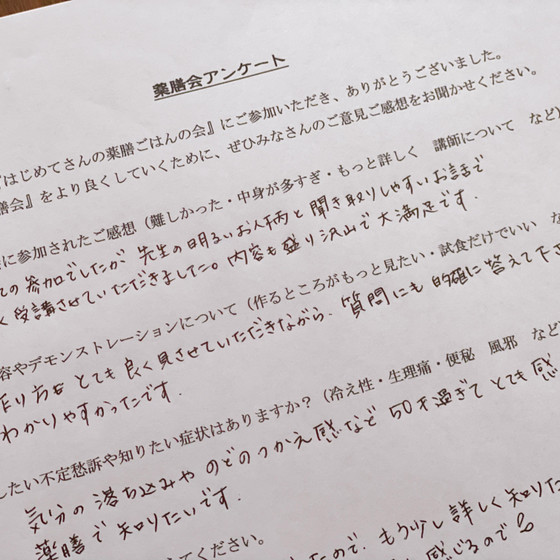 薬膳会アンケート
『はじめてさんの薬膳ごはんの会』にご参加いただき、ありがとうございました。
膳会』をより良くしていくために、ぜひみなさんのご意見ご感想をお聞かせください。
に参加されたご感想（難しかった・中身が多すぎ・もっと詳しく　講師について　など）
ての参加でしたが 先生の明るいお人柄と聞き取りしやすいお話で
く受講させていただきました。内容も盛り沢山で大満足です。
容やデモンストレーションについて（作るところがもっと見たい・試食だけでいい　な
作り方をとても良く見させていただきながら、質問にも的確に答えて下さ
わかりやすかったです。
したい不定愁訴や知りたい症状はありますか？（冷え性・生理痛・便秘　風邪　など
気分の落ち込みや のどのつかえ感など 50才過ぎてとても感
薬膳で知りたいです。
てください。
たので、もう少し詳しく知りた
感じるので